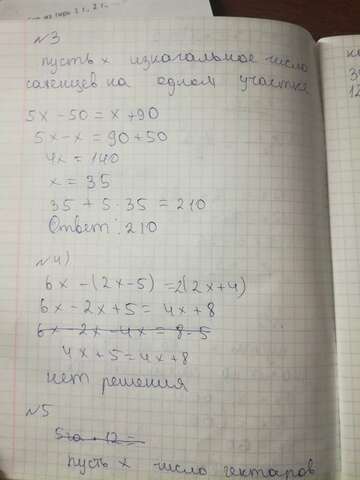 №3
пусть x изначальное число
саженцев на одном участке
5x - 50 = x + 90
5x - x = 90 + 50
4x = 140
x = 35
35 + 5 · 35 = 210
Ответ: 210
№4)
6x - (2x - 5) = 2(2x + 4)
6x - 2x + 5 = 4x + 8
6x - 2x - 4x = 8 - 5
4x + 5 = 4x + 8
нет решения
№5
пусть x число гектаров